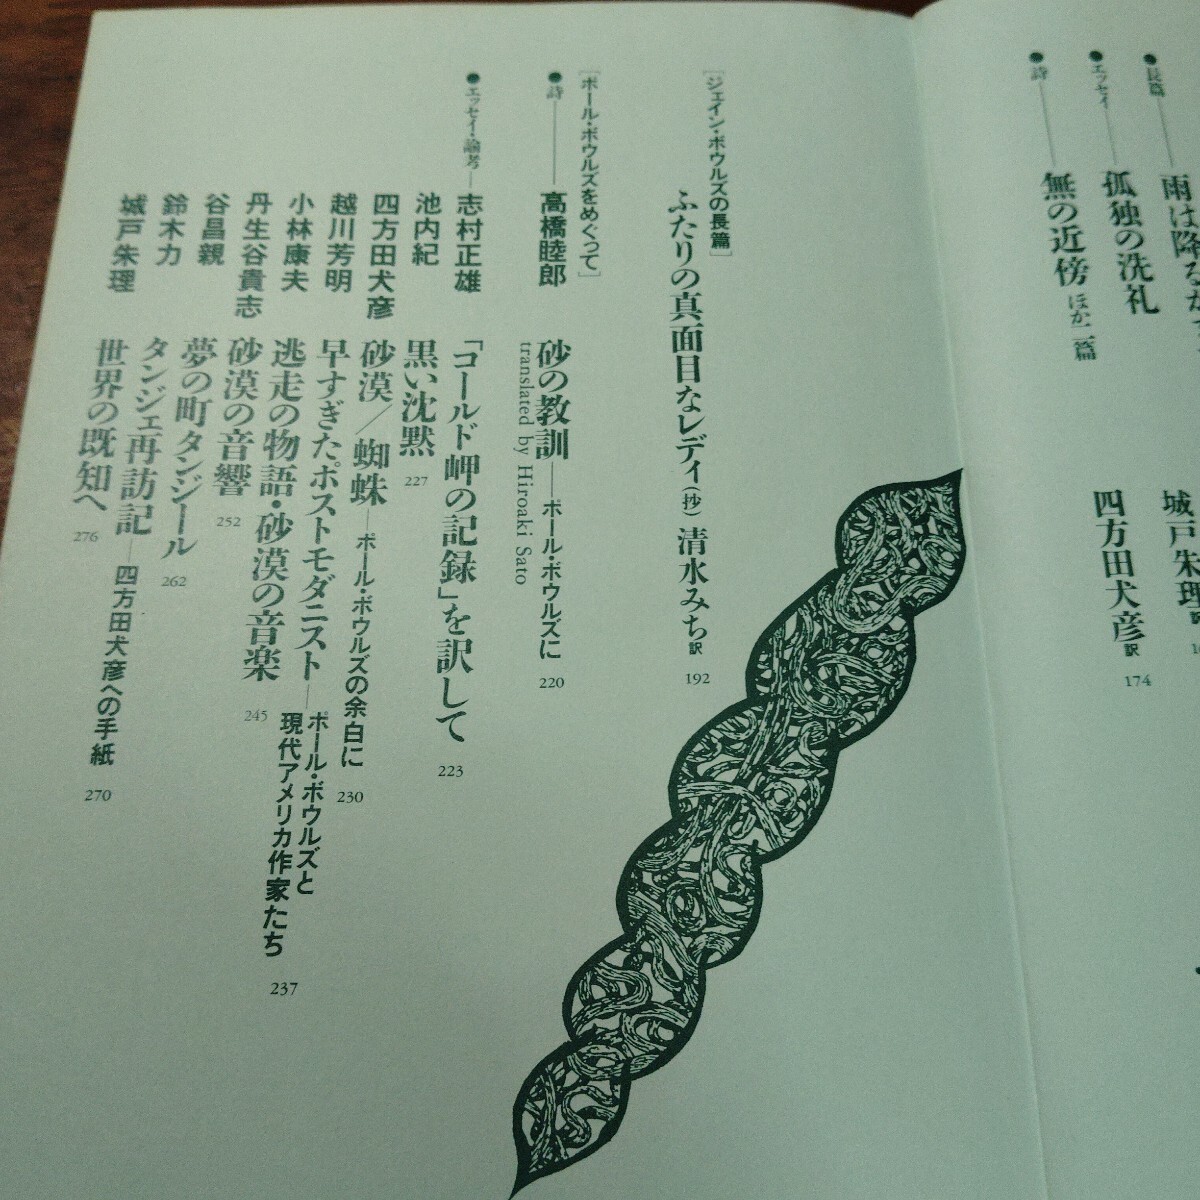 ●長篇
雨は降るが
●エッセイ
孤独の洗礼
●詩
無の近傍 ほか二篇
城戸朱理
四方田犬彦 訳
174
[ジェイン・ボウルズの長篇]
ふたりの真面目なレディ(抄) 清水みち 訳 192
[ポール・ボウルズをめぐって]
●詩 高橋睦郎 砂の教訓―ポール・ボウルズに 220
translated by Hiroaki Sato
●エッセイ・論考 志村正雄 「コールド岬の記録」を訳して 223
池内紀 黒い沈黙 227
四方田犬彦 砂漠/蜘蛛―ポール・ボウルズの余白に 230
越川芳明 早すぎたポストモダニスト―ポール・ボウルズと
現代アメリカ作家たち 237
小林康夫 逃走の物語・砂漠の音楽 245
丹生谷貴志 砂漠の音響 252
谷昌親 夢の町タンジール 262
鈴木力 タンジェ再訪記―四方田犬彦への手紙 270
城戸朱理 世界の既知へ 276